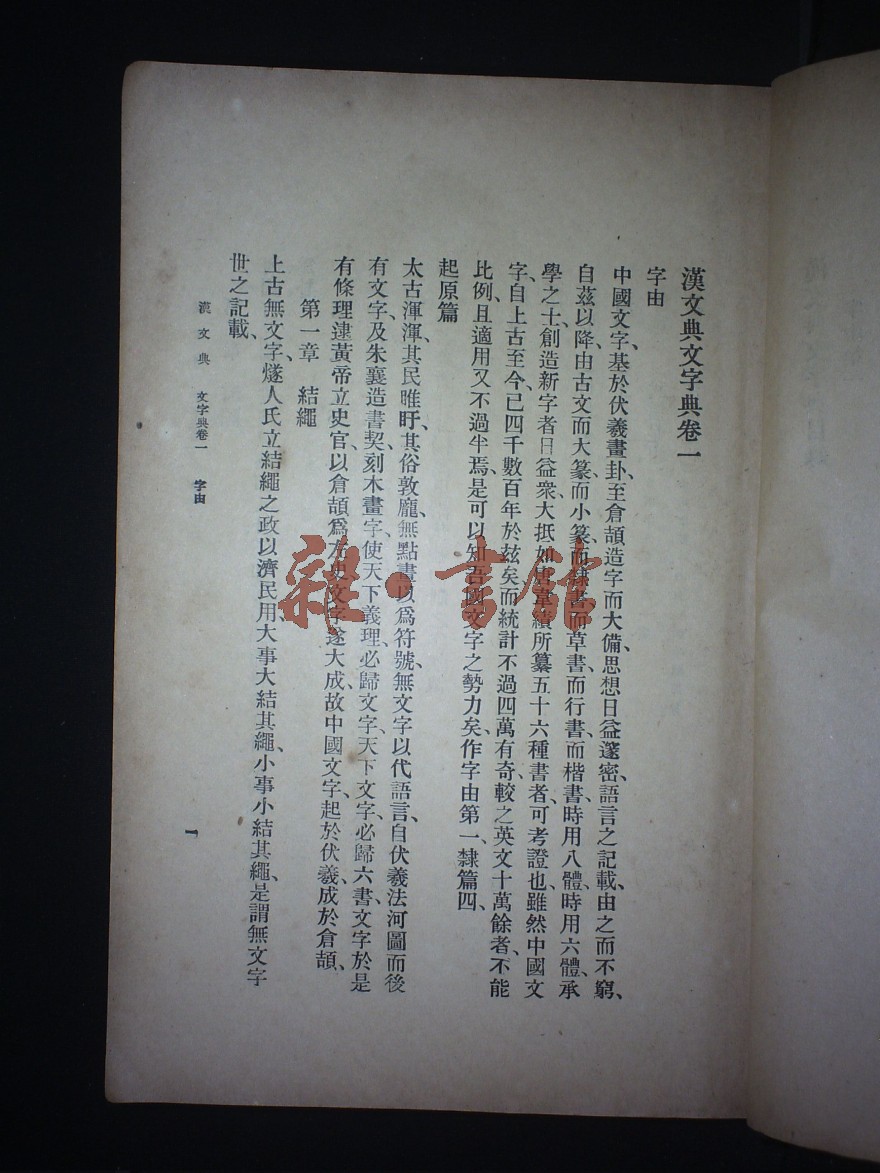 漢文典文字典卷一
字由
中國文字、基於伏羲畫卦、至倉頡造字而大備、思想日益邃密、語言之記載、由之而不窮、
自茲以降、由古文而大篆、而小篆、而隸書、而草書、而行書、而楷書、時用八體、時用六體、承
學之士、創造新字者、日益衆、大抵如唐韋續所纂五十六種書者、可考證也、雖然、中國文
字、自上古至今、已四千數百年於茲矣、而統計不過四萬有奇、較之英文十萬餘者、不能
比例、且適用又不過半焉、是可以知吾國文字之勢力矣、作字由第一、隸篇四、
起原篇
太古渾渾、其民睢盱、其俗敦龐、無點畫以爲符號、無文字以代語言、自伏羲法河圖而後
有文字、及朱襄造書契、刻木畫字、使天下義理、必歸文字、天下文字、必歸六書、文字於是
有條理、逮黃帝立史官、以倉頡爲左史、文字遂大成、故中國文字、起於伏羲、成於倉頡、
第一章 結繩
上古無文字、燧人氏立結繩之政、以濟民用、大事大結其繩、小事小結其繩、是謂無文字
世之記載、
漢文典 文字典卷一 字由
一
雜·書館